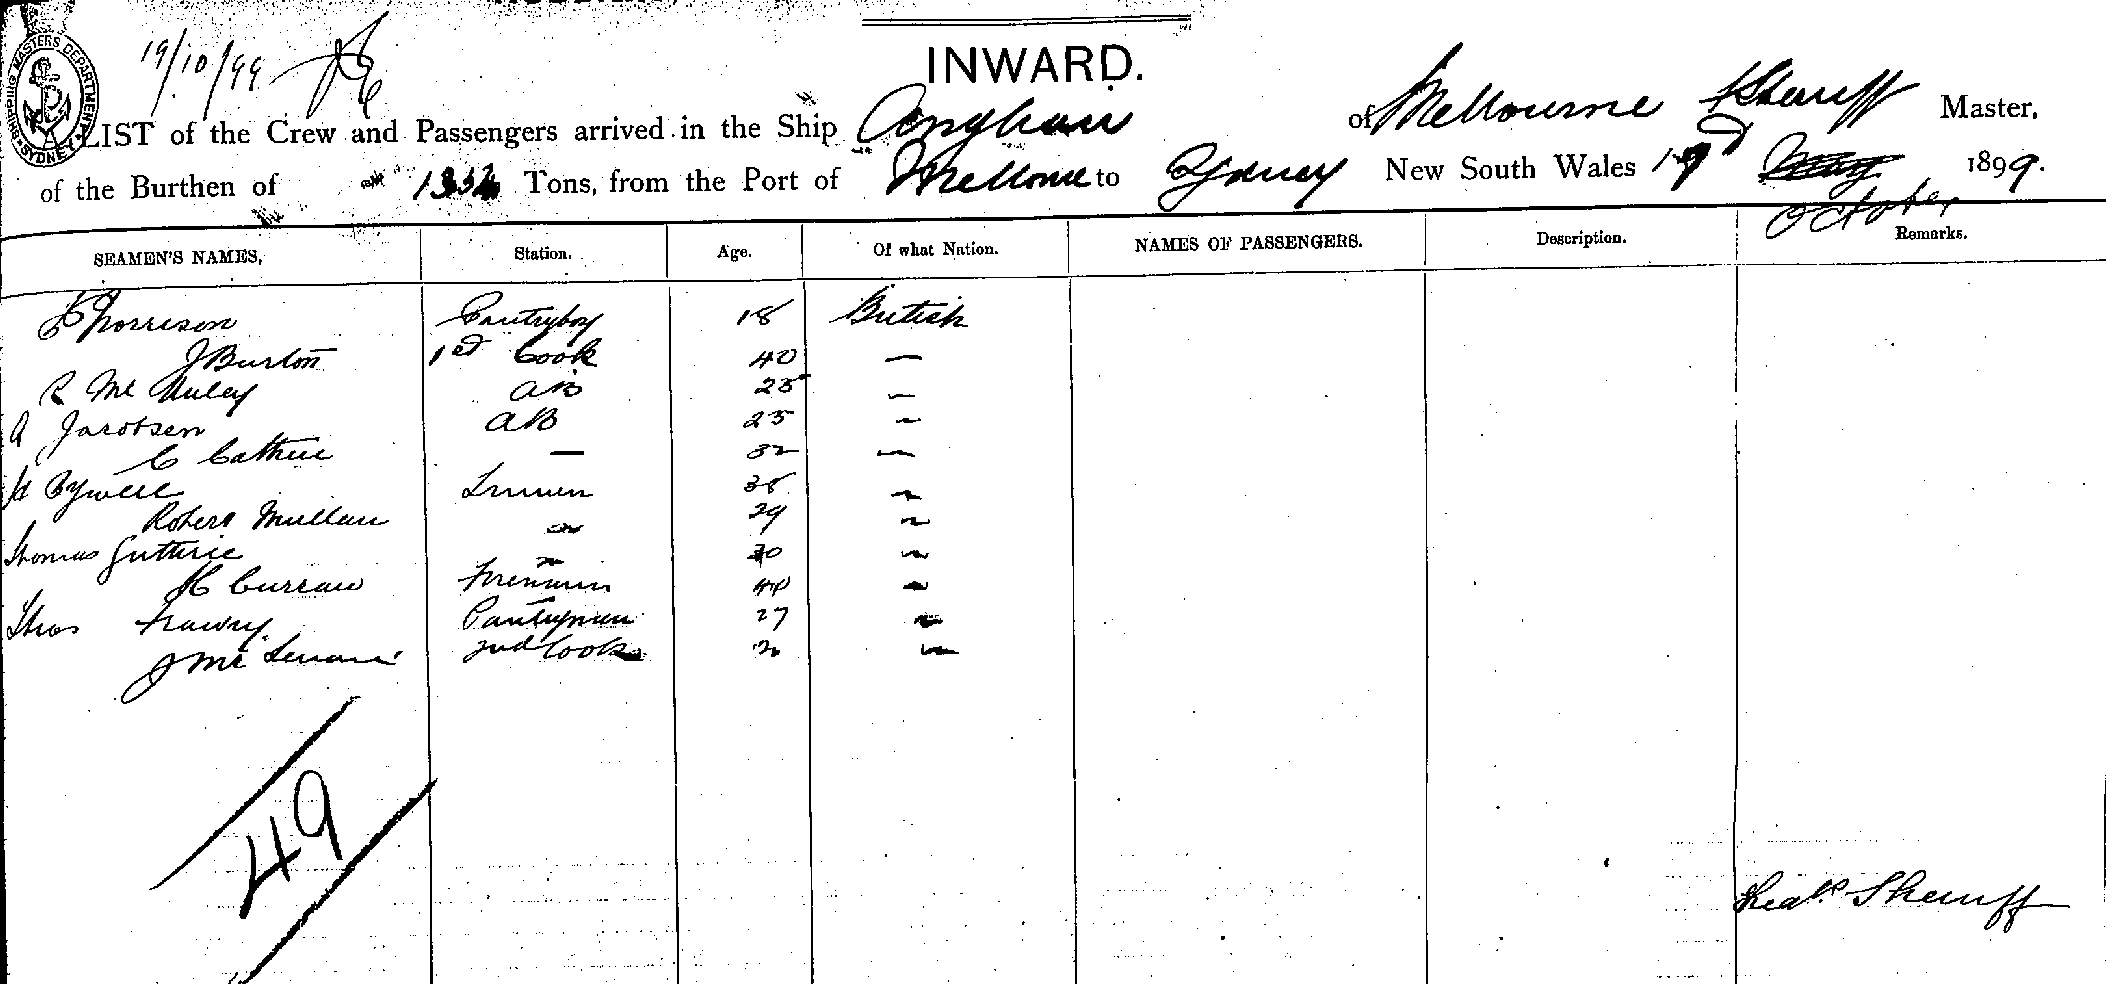 SHIPPING MASTERS DEPARTMENT SYDNEY
19/10/99
INWARD.
LIST of the Crew and Passengers arrived in the Ship of Melbourne Sherriff Master,
of the Burthen of 1334 Tons, from the Port of Melbourne to Sydney New South Wales 19 May October 1899.
SEAMEN'S NAMES, Station. Age. Of what Nation. NAMES OF PASSENGERS. Description. Remarks.
Morrison Pantryboy 18 British
J Burton 1st Cook 40 —
R Mc AB 25 —
A Jacobsen AB 25 —
C — 32 —
Bywell 38 —
Robert Mullan 29 —
Thomas Guthrie 30 —
Curran Fireman 40 —
Thos Pantryman 27 —
J Mc 2nd Cook —
49
Fredk Sherriff